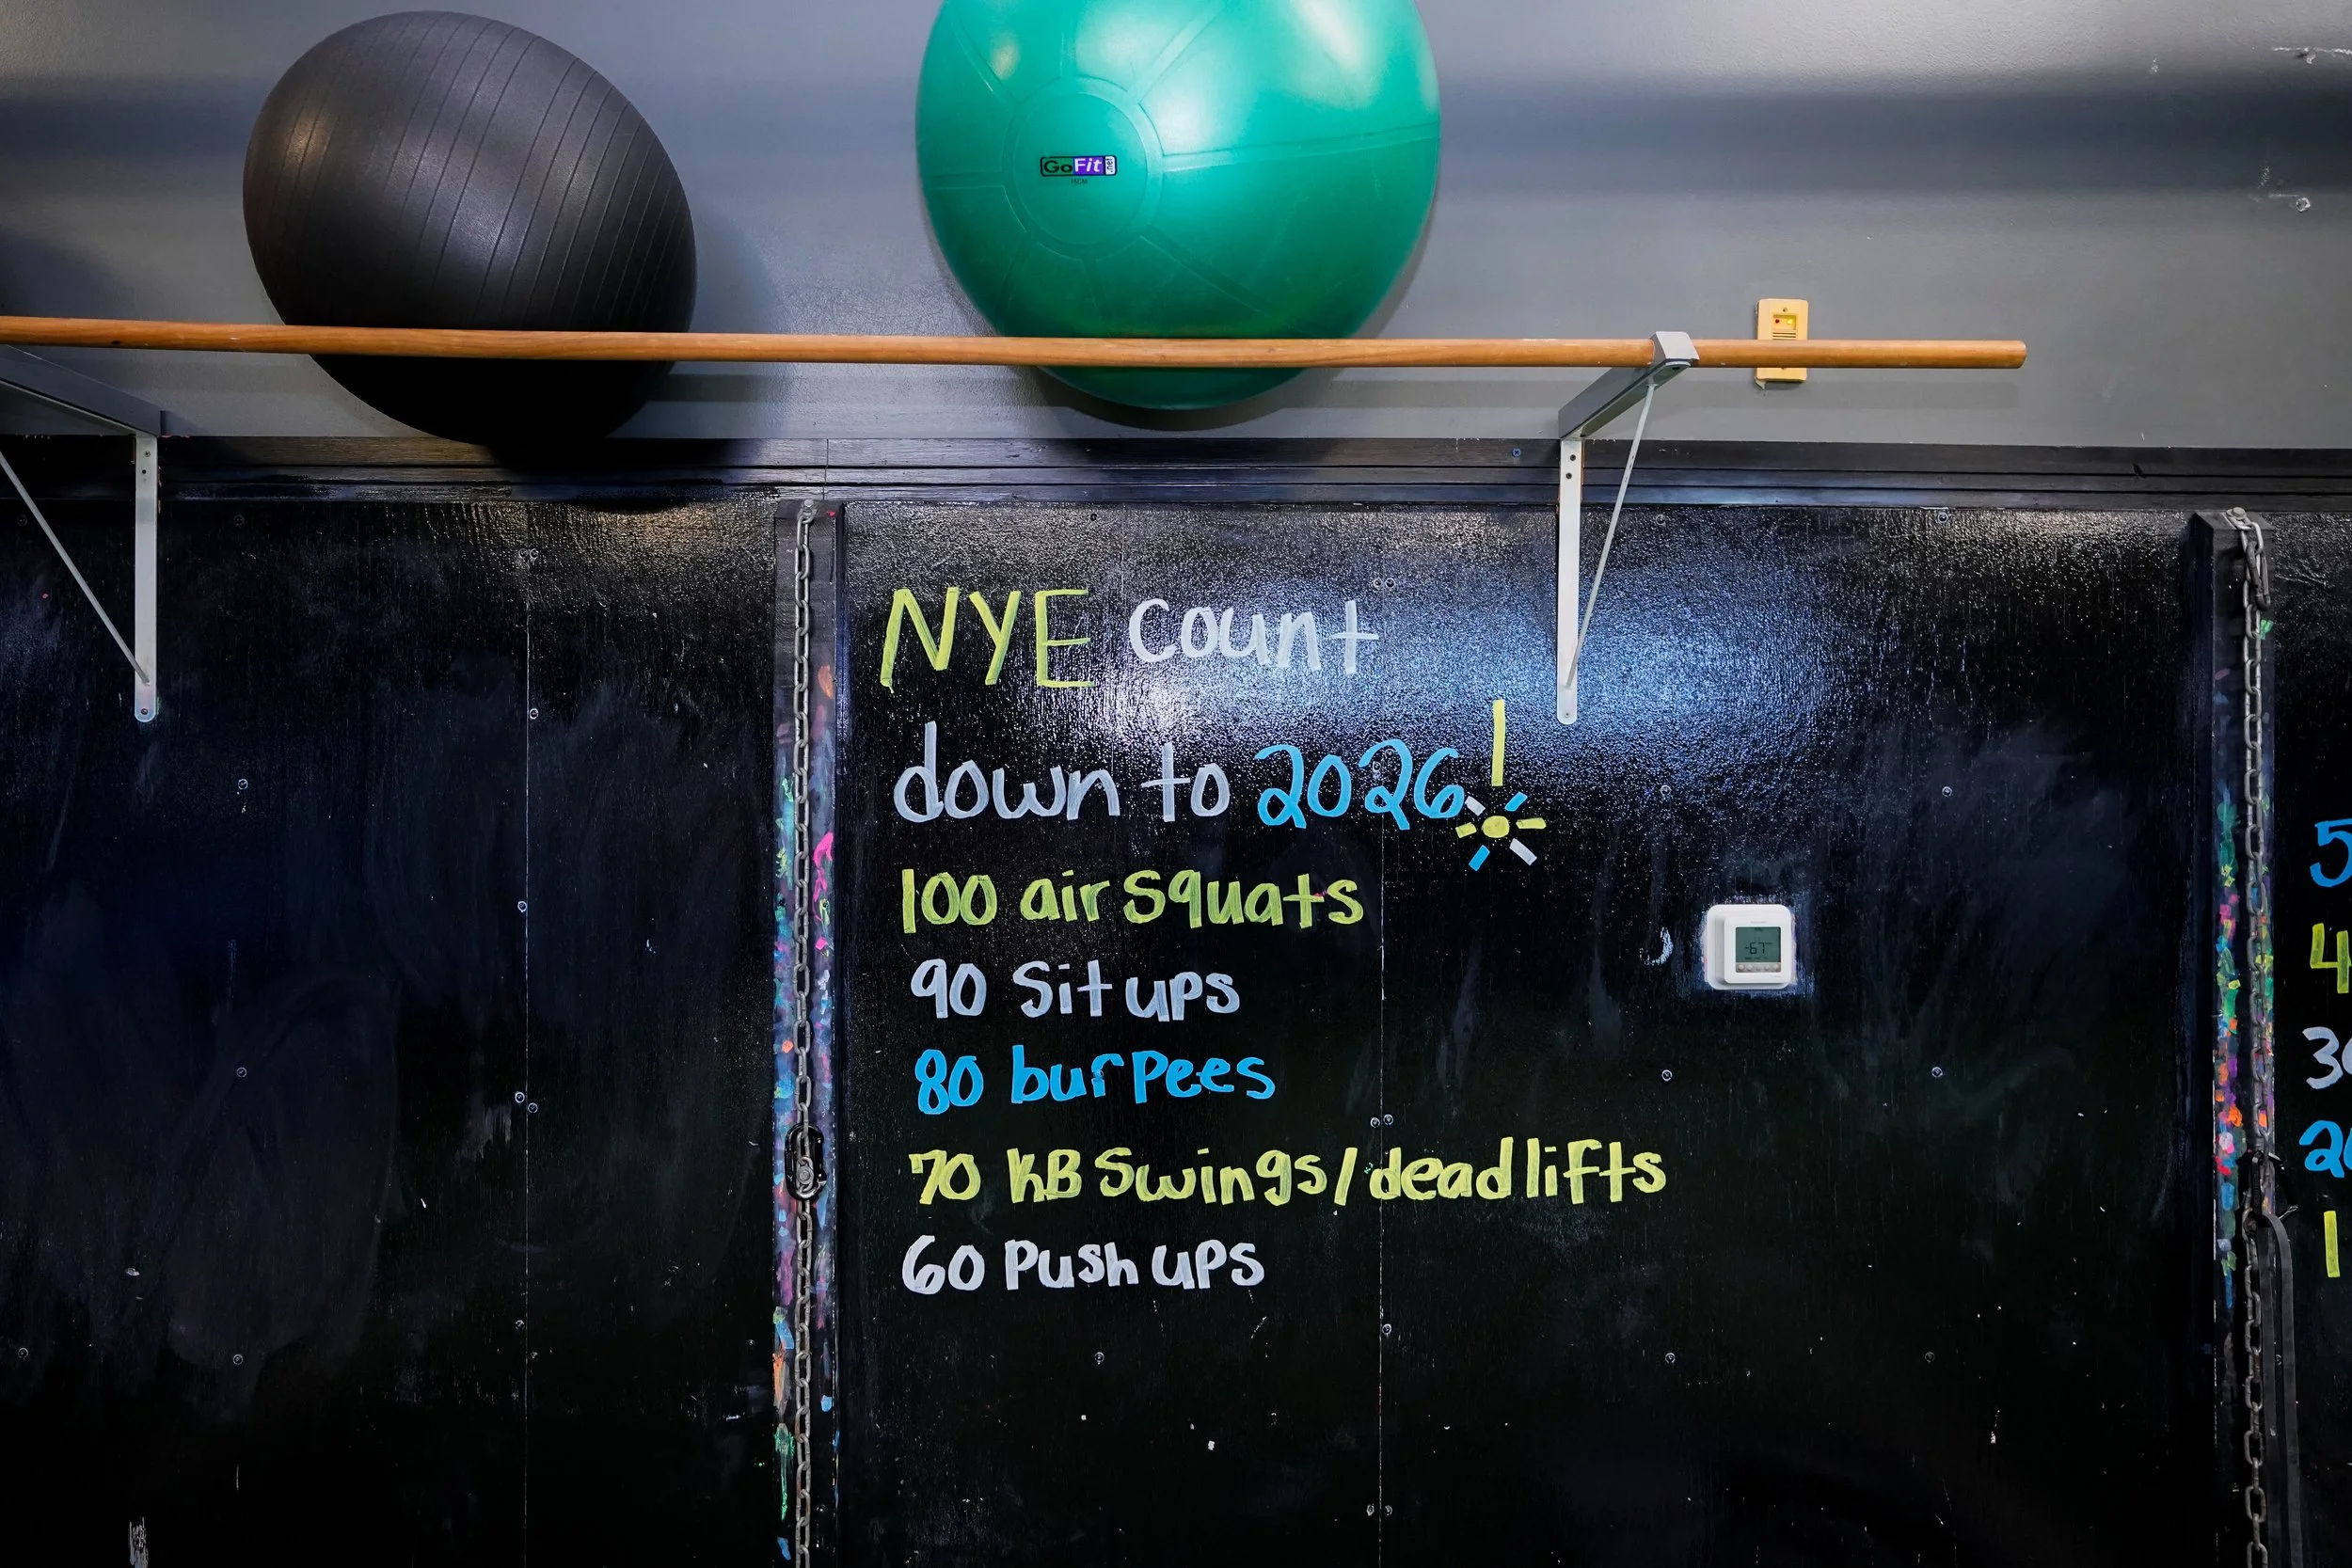 GoFit
NYE count
down to 2026!
100 air squats
90 Sit ups
80 burpees
70 KB Swings/deadlifts
60 Push ups
67
5
4
3
2
1